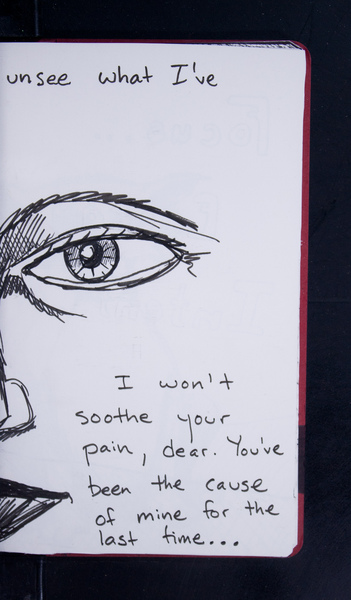 unsee what I've
I won't
soothe your
pain, dear. You've
been the cause
of mine for the
last time...